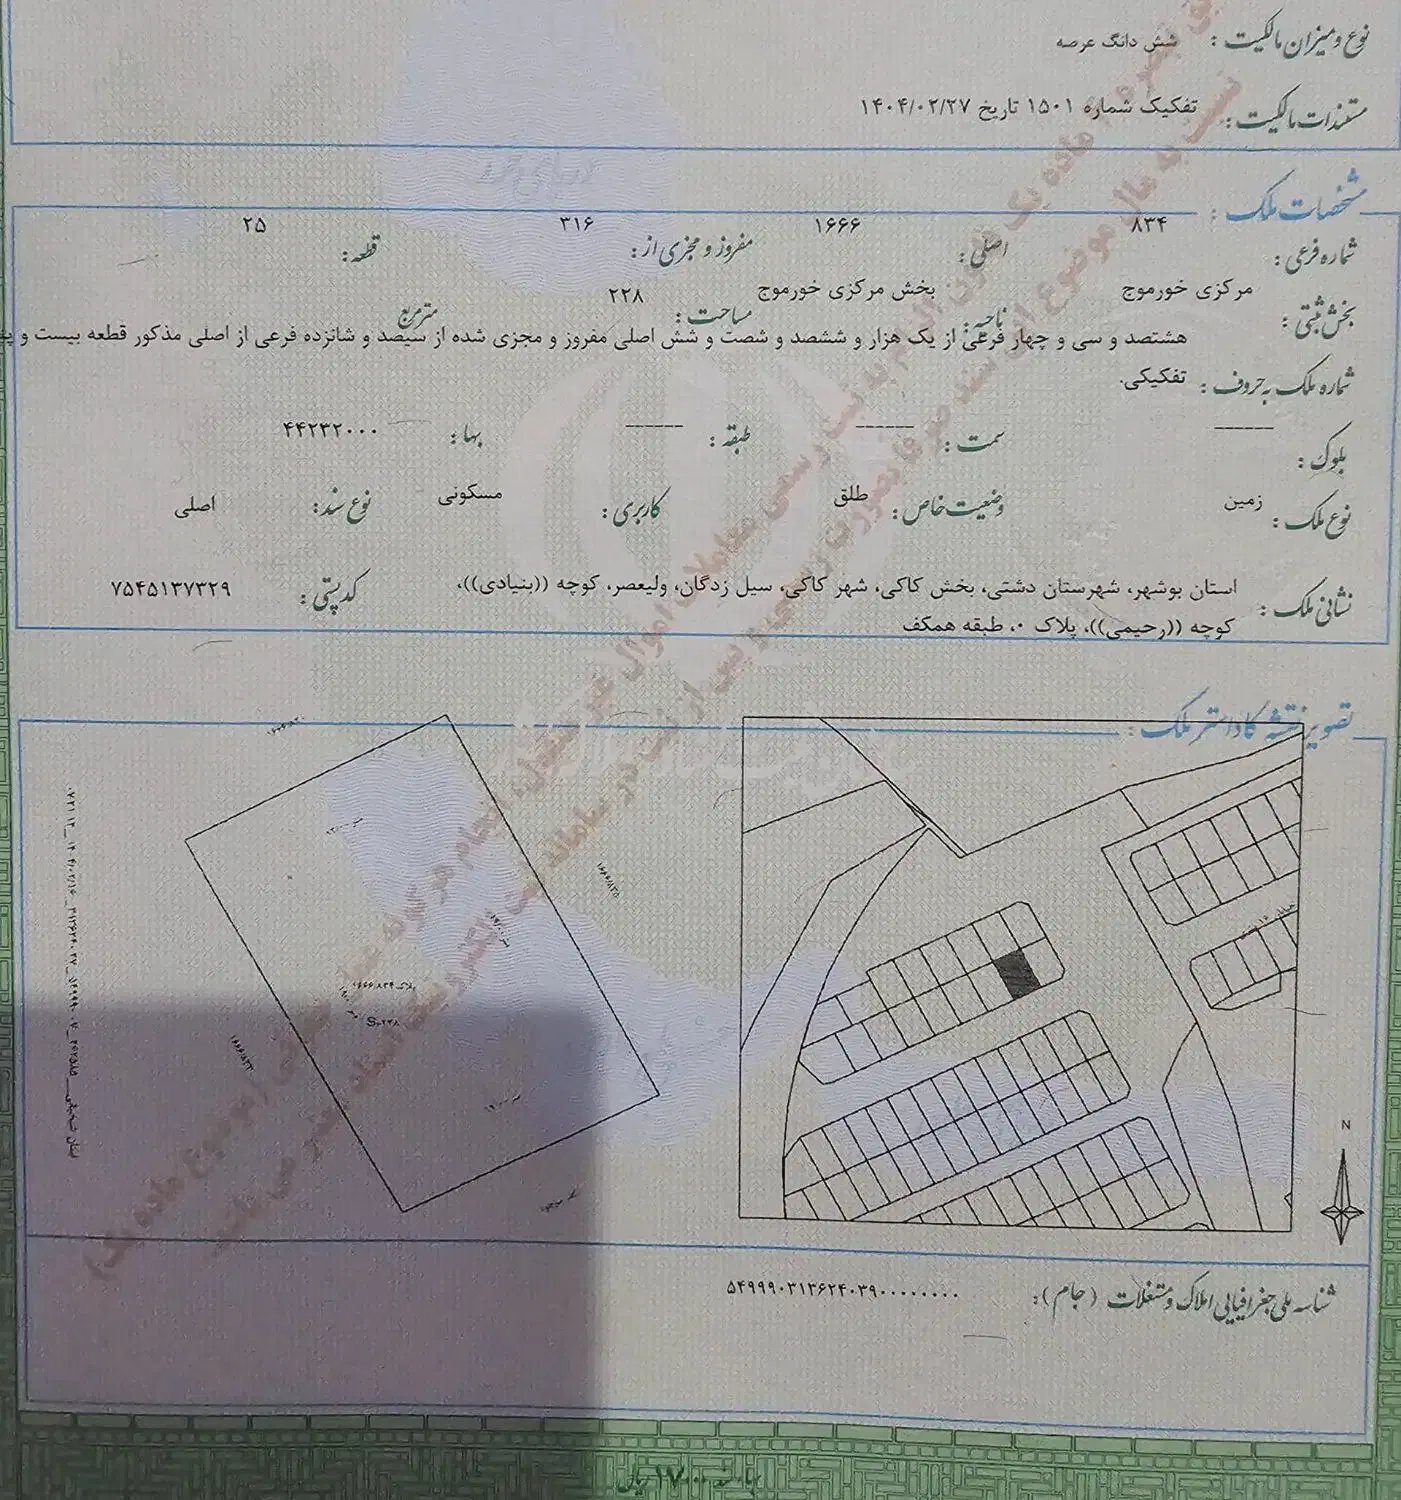 نوع و میزان مالکیت : شش دانگ عرصه
مستندات مالکیت : تفکیک شماره ۱۵۰۱ تاریخ ۱۴۰۴/۰۲/۲۷
مشخصات ملک :
شماره فرعی : ۸۳۴ اصلی : ۱۶۶۶ مفروز و مجزی از : ۳۱۶ قطعه : ۲۵
بخش ثبتی : مرکزی خورموج ناحیه : بخش مرکزی خورموج مساحت : ۲۲۸ مترمربع
هشتصد و سی و چهار فرعی از یک هزار و ششصد و شصت و شش اصلی مفروز و مجزی شده از سیصد و شانزده فرعی از اصلی مذکور قطعه بیست و
شماره ملک به حروف : تفکیکی.
بلوک : ------ سمت : ------ طبقه : ------ بها : ۴۴۲۳۲۰۰۰
نوع ملک : زمین وضعیت خاص : طلق کاربری : مسکونی نوع سند : اصلی
نشانی ملک : استان بوشهر، شهرستان دشتی، بخش کاکی، شهر کاکی، سیل زدگان، ولیعصر، کوچه ((بنیادی))، کد پستی : ۷۵۴۵۱۳۷۳۲۹
کوچه ((رحیمی))، پلاک ۰، طبقه همکف
تصویر نقشه کاداستر ملک :
۱۶۶۶/۸۳۵
پلاک ۱۶۶۶/۸۳۴
S=۲۲۸
۱۶۶۶/۸۳۳
N
شناسه ملی جغرافیایی املاک و مستغلات (جام) : ۵۴۹۹۹۰۳۱۳۶۲۴۰۳۹۰۰۰۰۰۰۰۰۰
بهاء سند ۱۷۰۰۰ ریال